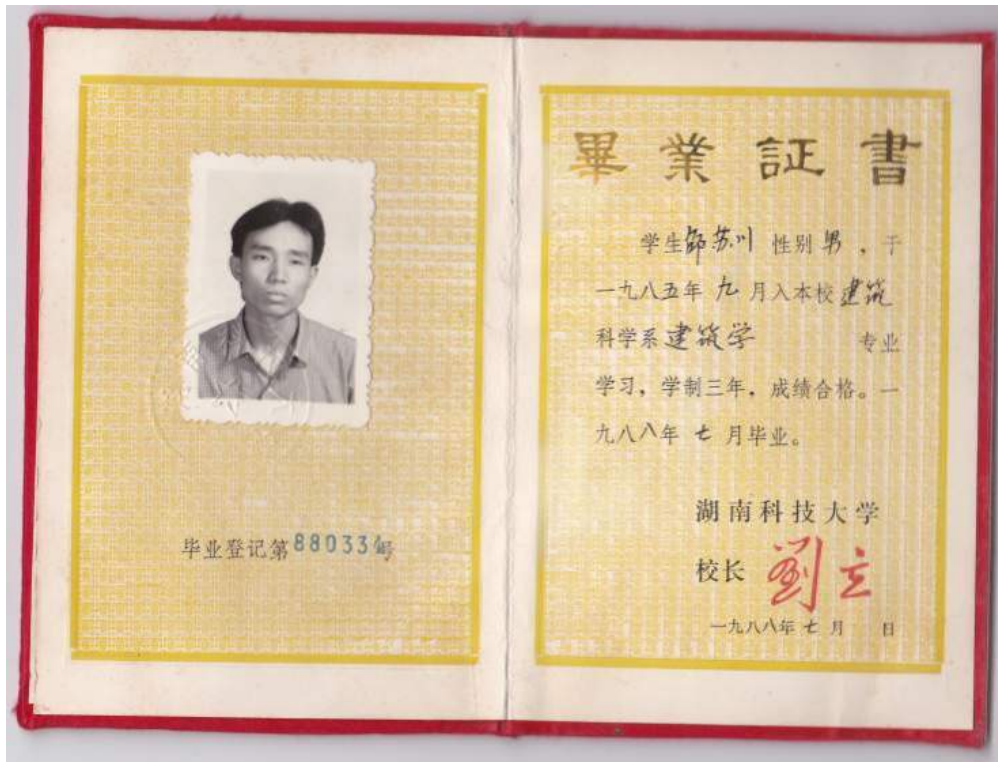 毕业登记第88033号
畢業証書
学生 苏川 性别 男 ,于
一九八五年 九 月入本校 建筑
科学系 建筑学 专业
学习,学制三年,成绩合格。一
九八八年 七 月毕业。
湖南科技大学
校长 劉立
一九八八年 七 月 日